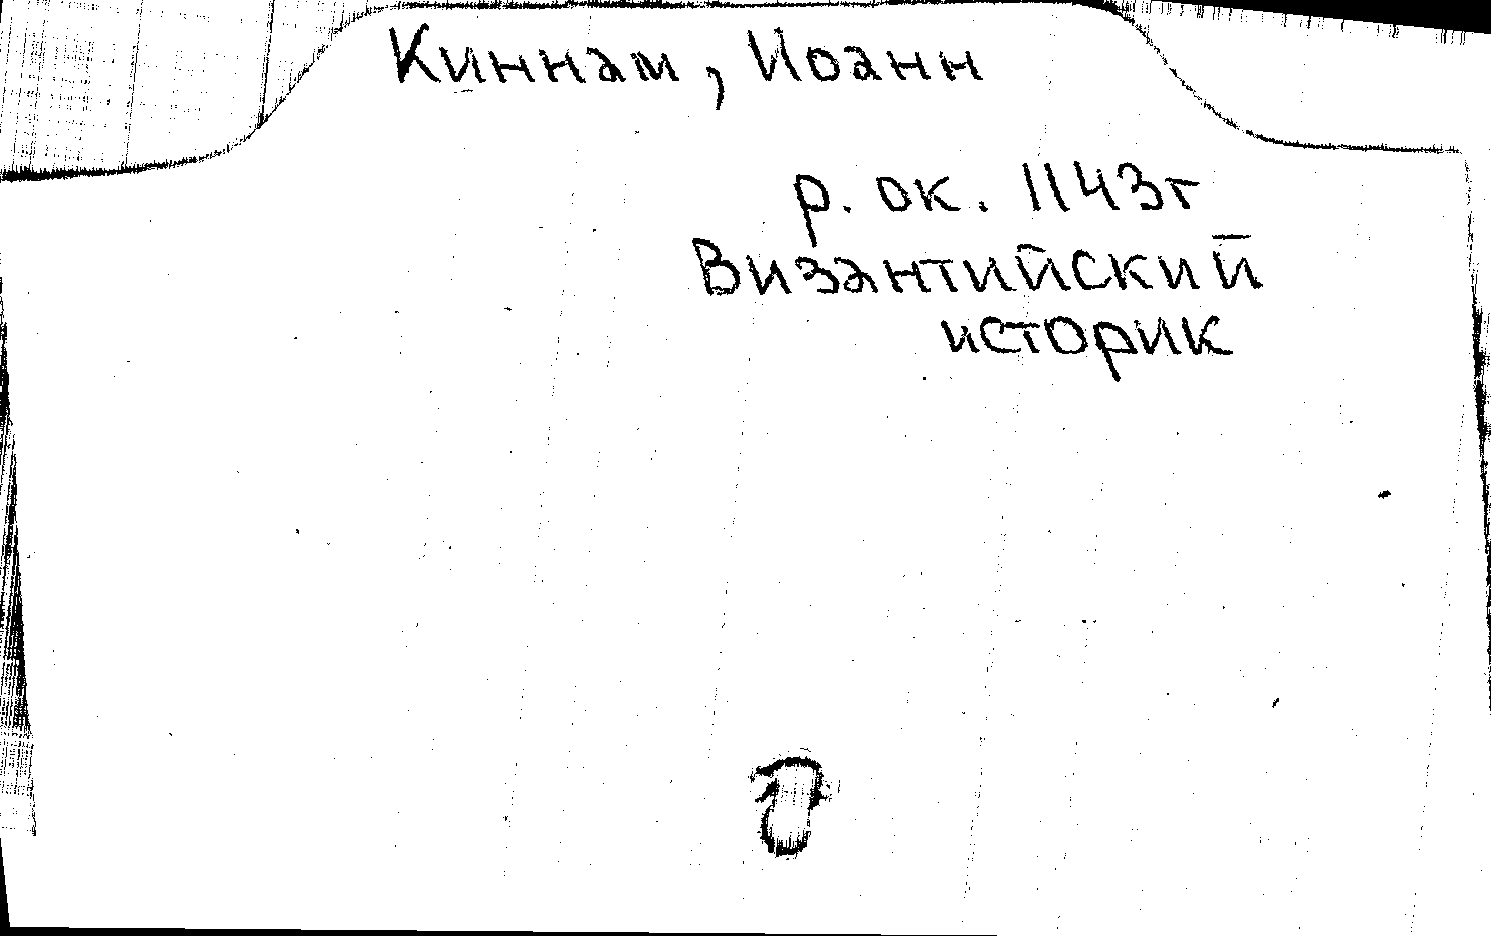 Киннам, Иоанн
р. ок. 1143г
Византийский
историк